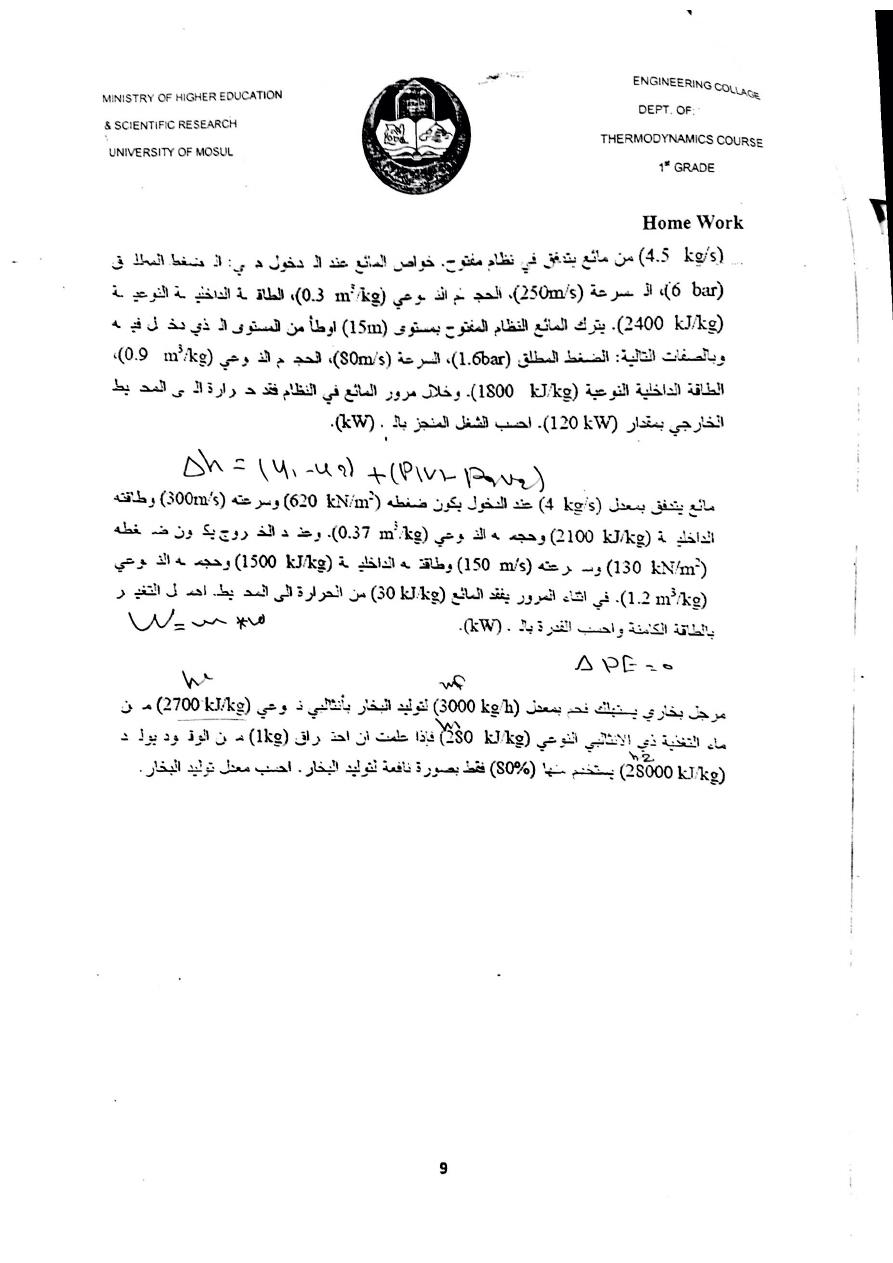 MINISTRY OF HIGHER EDUCATION
& SCIENTIFIC RESEARCH
UNIVERSITY OF MOSUL
ENGINEERING COLLAGE
DEPT. OF:
THERMODYNAMICS COURSE
1st GRADE
Home Work
(4.5 kg/s) من مائع يتدفق في نظام مفتوح. خواص المائع عند الدخول هي: الضغط المطلق
(6 bar)، السرعة (250m/s)، الحجم النوعي (0.3 m³/kg)، الطاقة الداخلية النوعية
(2400 kJ/kg). يترك المائع النظام المفتوح بمستوى (15m) اوطأ من المستوى الذي دخل فيه
وبالصفات التالية: الضغط المطلق (1.6bar)، السرعة (80m/s)، الحجم النوعي (0.9 m³/kg)،
الطاقة الداخلية النوعية (1800 kJ/kg). وخلال مرور المائع في النظام فقد حرارة الى المحيط
الخارجي بمقدار (120 kW). احسب الشغل المنجز بالـ (kW).
Δh = (u1 - u2) + (P1v1 - P2v2)
مائع يتدفق بمعدل (4 kg/s) عند الدخول يكون ضغطه (620 kN/m²) وسرعته (300m/s) وطاقته
الداخلية (2100 kJ/kg) وحجمه النوعي (0.37 m³/kg). وعند الخروج يكون ضغطه
(130 kN/m²) وسرعته (150 m/s) وطاقته الداخلية (1500 kJ/kg) وحجمه النوعي
(1.2 m³/kg). في اثناء المرور يفقد المائع (30 kJ/kg) من الحرارة الى المحيط. اهمل التغير
بالطاقة الكامنة واحسب القدرة بالـ (kW).
W = m * w
Δ PE = 0
mf
مرجل بخاري يستهلك فحم بمعدل (3000 kg/h) لتوليد البخار بأنثالبي نوعي (2700 kJ/kg) من
ماء التغذية ذي الانثالبي النوعي (280 kJ/kg) فإذا علمت ان احتراق (1kg) من الوقود يولد
h2
(28000 kJ/kg) يستخدم منها (80%) فقط بصورة نافعة لتوليد البخار. احسب معدل توليد البخار.
9